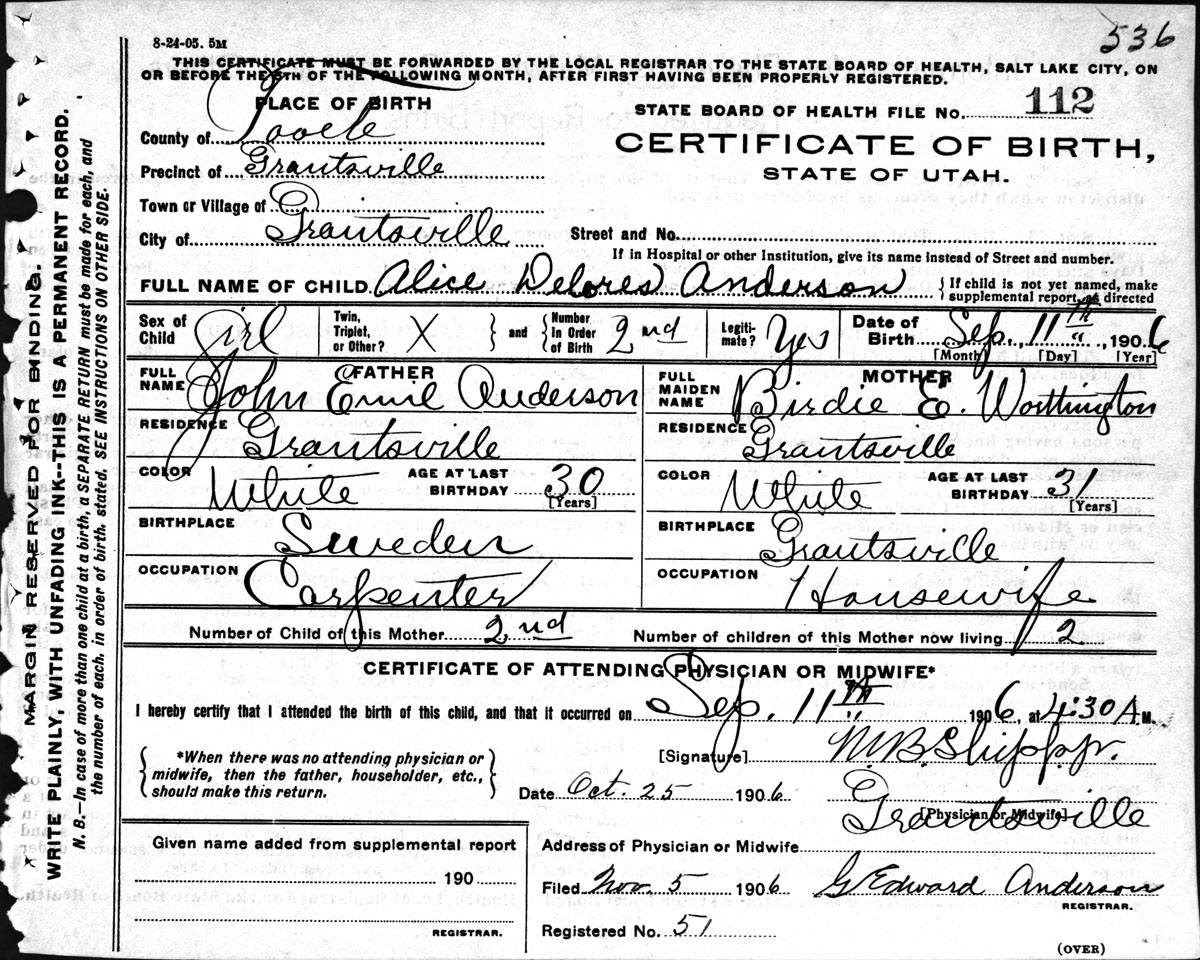 536
8-24-05. 5M
THIS CERTIFICATE MUST BE FORWARDED BY THE LOCAL REGISTRAR TO THE STATE BOARD OF HEALTH, SALT LAKE CITY, ON
OR BEFORE THE 5TH OF THE FOLLOWING MONTH, AFTER FIRST HAVING BEEN PROPERLY REGISTERED.
PLACE OF BIRTH
STATE BOARD OF HEALTH FILE No. 112
County of Tooele
CERTIFICATE OF BIRTH,
Precinct of Grantsville
STATE OF UTAH.
Town or Village of
City of Grantsville
Street and No.
If in Hospital or other Institution, give its name instead of Street and number.
FULL NAME OF CHILD Alice Delores Anderson { If child is not yet named, make
supplemental report, as directed
Sex of Child Girl
Twin, Triplet, or Other? X } and { Number, In Order of Birth 2nd
Legitimate? Yes
Date of Birth Sep. 11th, 1906
[Month] [Day] [Year]
FATHER
FULL NAME John Emil Anderson
RESIDENCE Grantsville
COLOR White AGE AT LAST BIRTHDAY 30
[Years]
BIRTHPLACE Sweden
OCCUPATION Carpenter
MOTHER
FULL MAIDEN NAME Birdie E. Worthington
RESIDENCE Grantsville
COLOR White AGE AT LAST BIRTHDAY 31
[Years]
BIRTHPLACE Grantsville
OCCUPATION Housewife
Number of Child of this Mother 2nd Number of children of this Mother now living 2
CERTIFICATE OF ATTENDING PHYSICIAN OR MIDWIFE*
I hereby certify that I attended the birth of this child, and that it occurred on Sep. 11th 1906, at 4:30 A.M.
{ *When there was no attending physician or
midwife, then the father, householder, etc.,
should make this return. }
[Signature] M.B. Shipp Jr.
Date Oct. 25 1906
[Physician or Midwife]
Grantsville
Address of Physician or Midwife
Given name added from supplemental report
190
REGISTRAR.
Filed Nov. 5 1906 G Edward Anderson
REGISTRAR.
Registered No. 51
(OVER)
MARGIN RESERVED FOR BINDING.
WRITE PLAINLY, WITH UNFADING INK--THIS IS A PERMANENT RECORD.
N. B.—In case of more than one child at birth, a SEPARATE RETURN must be made for each, and
the number of each, in order of birth, stated. SEE INSTRUCTIONS ON OTHER SIDE.